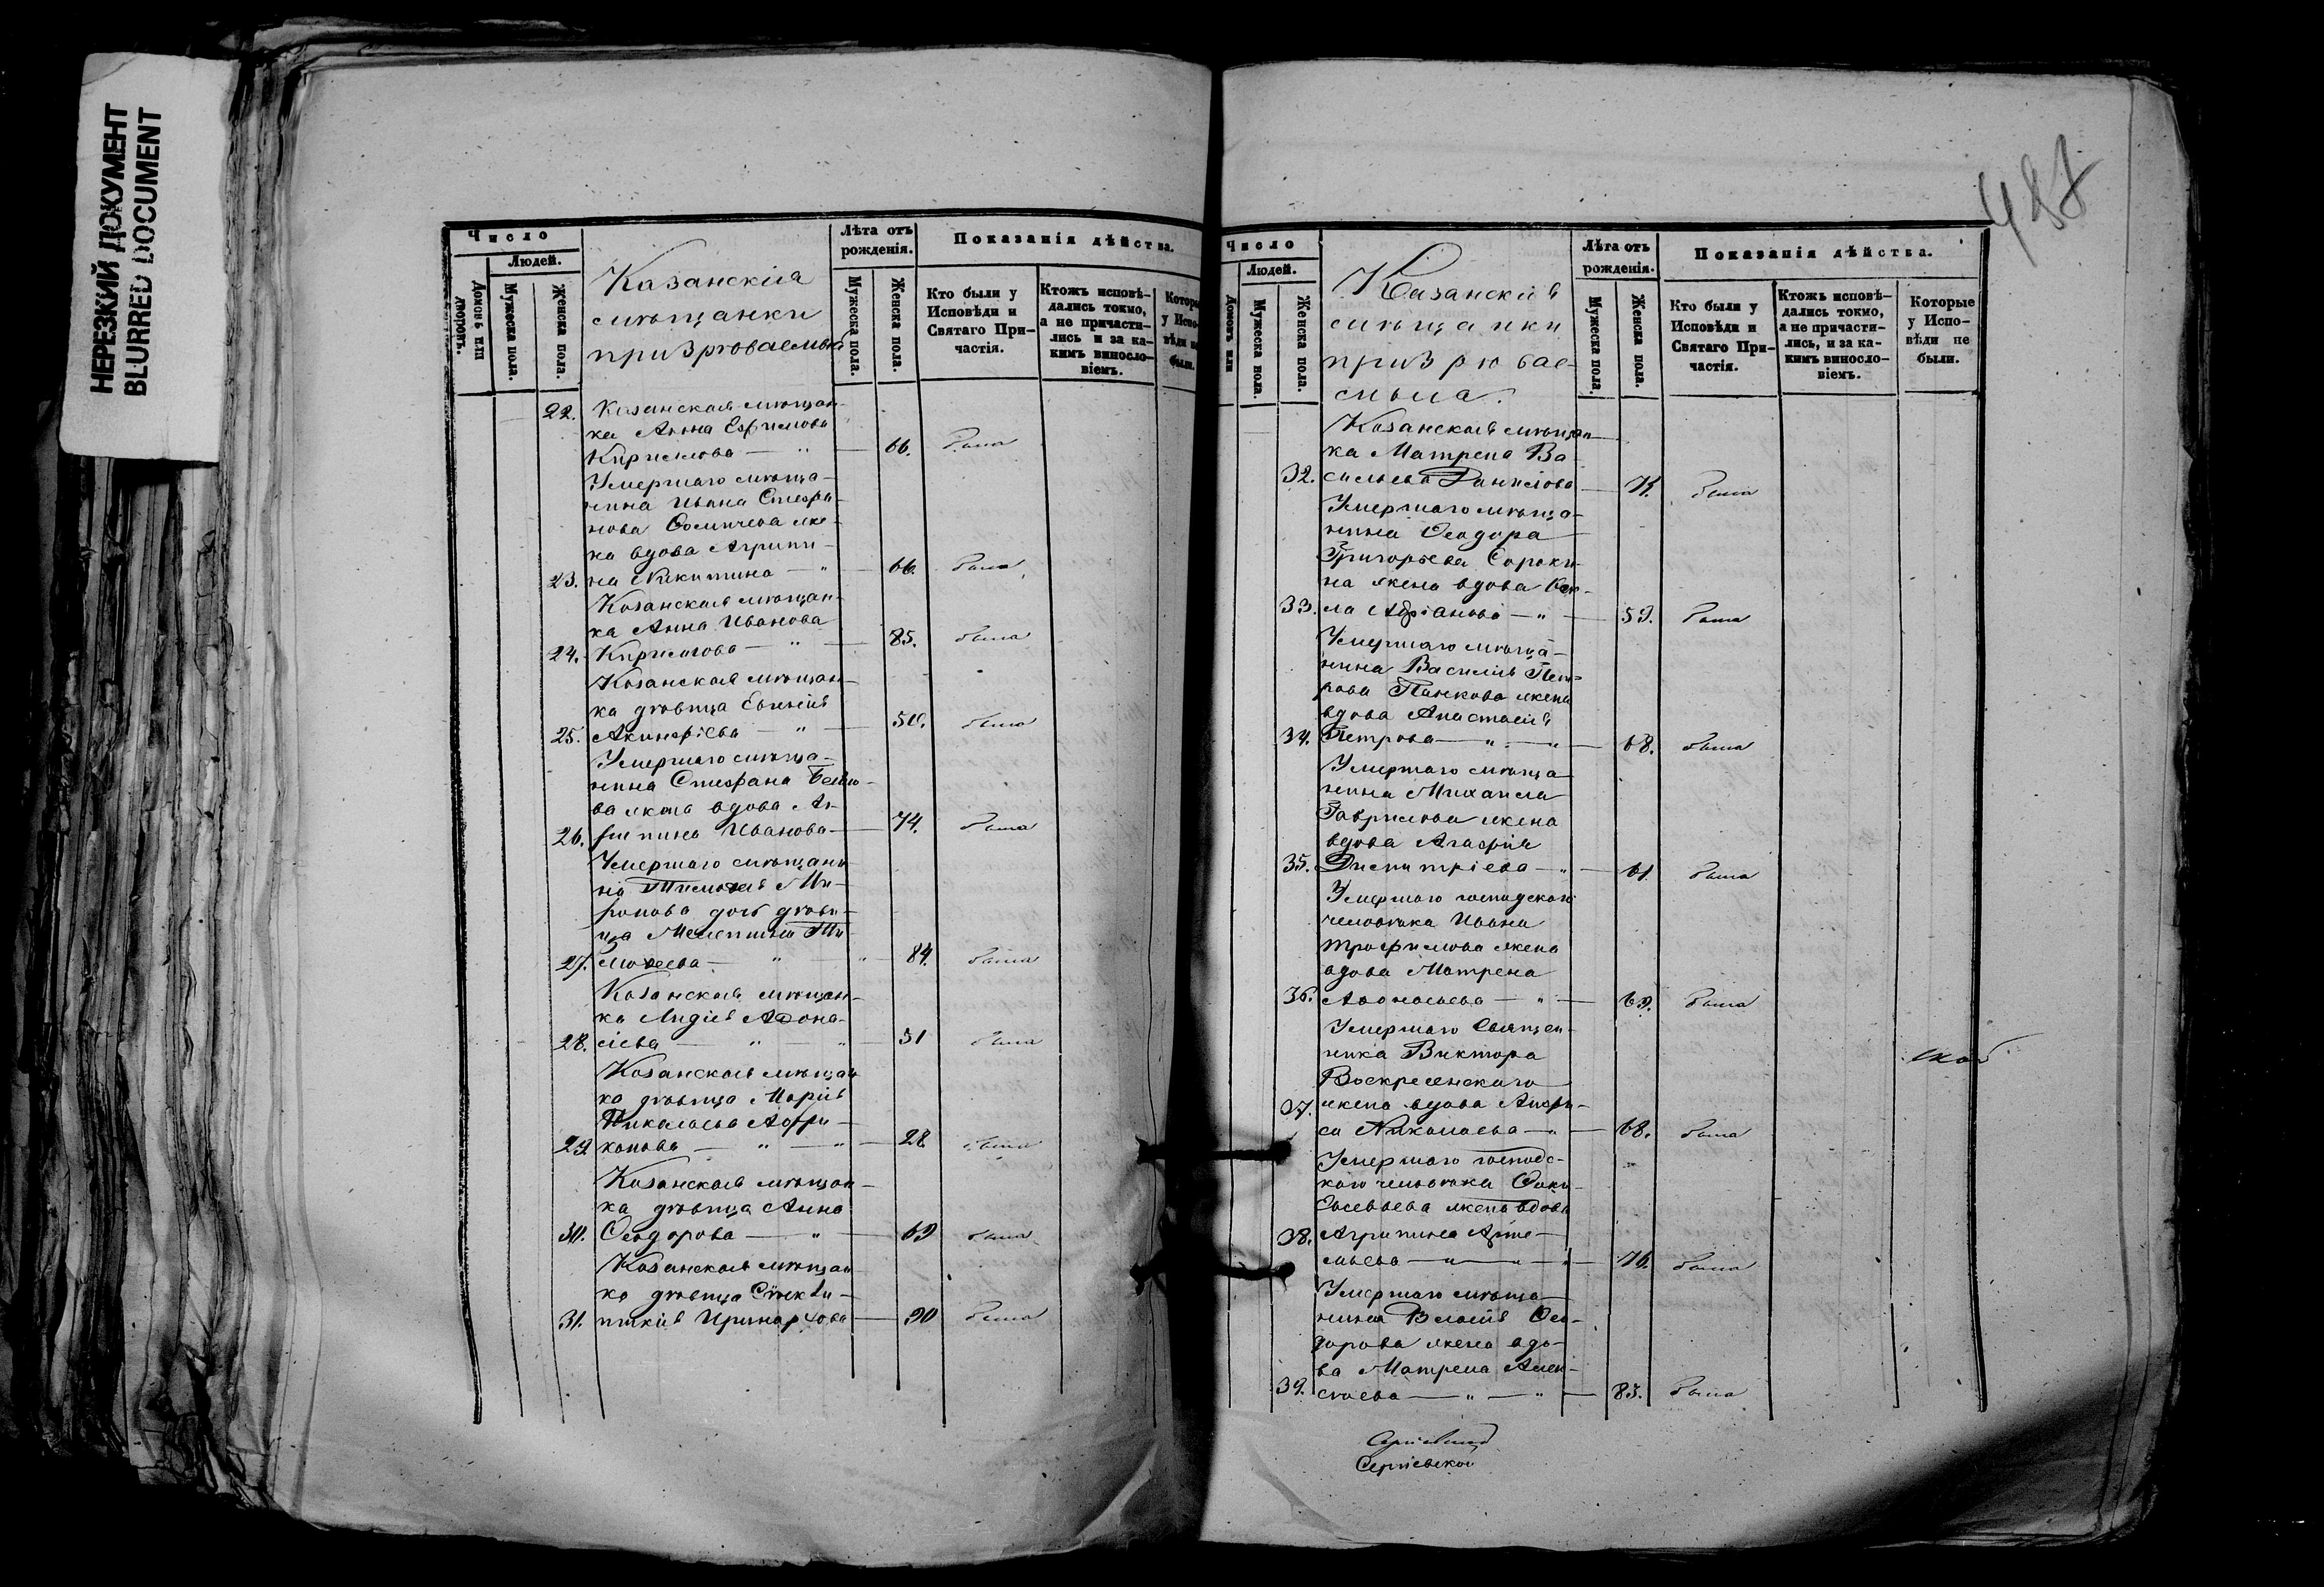 НЕРЕЗКИЙ ДОКУМЕНТ
BLURRED DOCUMENT
Число
Людей.
Домовъ или дворовъ.
Мужеска пола.
Женска пола.
Казанскія
мѣщанки
призрѣваемыя
Лѣта отъ рожденія.
Мужеска пола.
Женска пола.
Показанія дѣйства.
Кто были у Исповѣди и Святаго Причастія.
Ктожъ исповѣдались токмо, а не причастились и за какимъ винословіемъ.
Которые у Исповѣди не были.
22. Казанская мѣщан-
ка Анна Ефимова
Кирилова — " — 66. Была
Умершаго мѣща-
нина Ивана Стефа-
нова жена
вдова Агрипи-
23. на Никитина — " — 66. Была
Казанская мѣщан-
ка Анна Иванова
24. Кирилова — " — 85. была
Казанская мѣщан-
ка дѣвица Евгенія
25. Акинфіева — " — 50. была
Умершаго мѣща-
нина Стефана
жена вдова Аг-
26. рипина Иванова — 74. Была
Умершаго мѣщани-
на Тимоѳея Ми-
ронова дочь дѣви-
ца Ти-
27. моѳеева — " — " — 84. была
Казанская мѣщан-
ка Лидія Аѳона-
28. сіева — " — " — 31 была
Казанская мѣщан-
ка дѣвица Марія
Николаева Афри-
29. конова — " — " — 28 была
Казанская мѣщан-
ка дѣвица Анна
30. Ѳеодорова — " — 69 была
Казанская мѣщан-
ка дѣвица Синкли-
31. тикія Иринархова — 90 была
487
Число
Людей.
Домовъ или
Мужеска пола.
Женска пола.
Казанскія
мѣщанки
призрѣвае-
мыя.
Лѣта отъ рожденія.
Мужеска пола.
Женска пола.
Показанія дѣйства.
Кто были у Исповѣди и Святаго Причастія.
Ктожъ исповѣдались токмо, а не причастились, и за какимъ винословіемъ.
Которые у Исповѣди не были.
Казанская мѣщан-
ка Матрена Ва-
32. сильева Данилова — была
Умершаго мѣща-
нина Ѳеодора
Григорьева Сороки-
на жена вдова Фек-
33. ла Адріанова — " — 59. Была
Умершаго мѣща-
нина Василія Пет-
рова Панкова жена
вдова Анастасія
34. Петрова — " — " — 68. была
Умершаго мѣща-
нина Михаила
Гаврилова жена
вдова Агафія
35. Димитріева — " — 61. Была
Умершаго господскаго
человѣка Ивана
Трофимова жена
вдова Матрена
36. Аѳонасьева — " — 69. была
Умершаго Священ-
ника Виктора
Воскресенскаго
37. жена вдова Анфи-
са Николаева — " — 68. была
Умершаго господс-
каго человѣка
Евсевьева жена вдова
38. Агрипина Арте-
мьева — " — " — 76. была
Умершаго мѣща-
нина Власія Ѳео-
дорова жена вдо-
ва Матрена Алек-
39. сѣева — " — " — 83. Была
Сергіевской